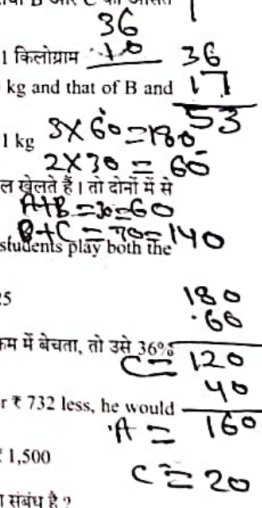 36
1 किलोग्राम 10 36
kg and that of B and 17
53
1 kg 3×60=180
2×30 = 60
ल खेलते हैं। तो दोनों में से
A+B=30=60
B+C=70=140
students play both the
5 180
60
कम में बेचता, तो उसे 36%
C= 120
40
r ₹ 732 less, he would
A = 160
1,500
C = 20
संबंध है ?